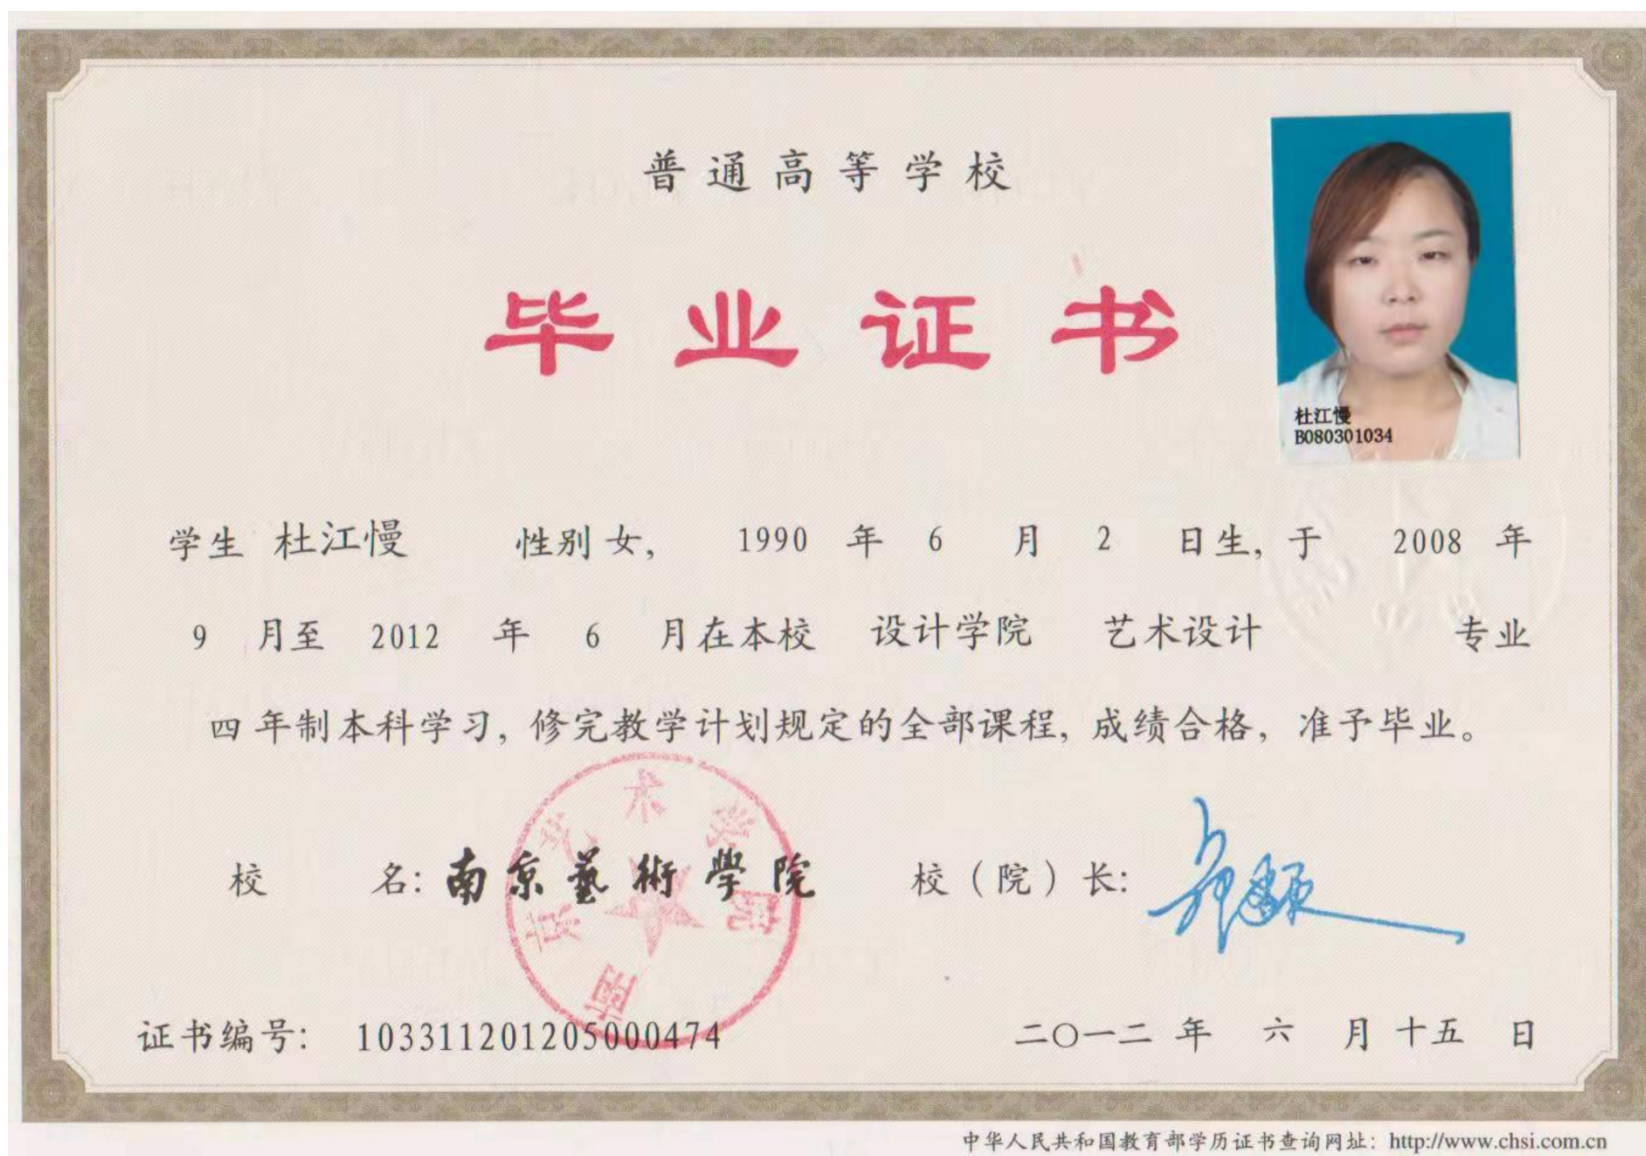 普通高等学校
毕业证书
杜江慢
B080301034
学生 杜江慢 性别 女, 1990 年 6 月 2 日生, 于 2008 年
9 月至 2012 年 6 月在本校 设计学院 艺术设计 专业
四 年制本科学习, 修完教学计划规定的全部课程, 成绩合格, 准予毕业。
校 名: 南京藝術學院 校（院）长:
南京艺术学院
证书编号: 103311201205000474 二〇一二 年 六 月 十五 日
中华人民共和国教育部学历证书查询网址: http://www.chsi.com.cn